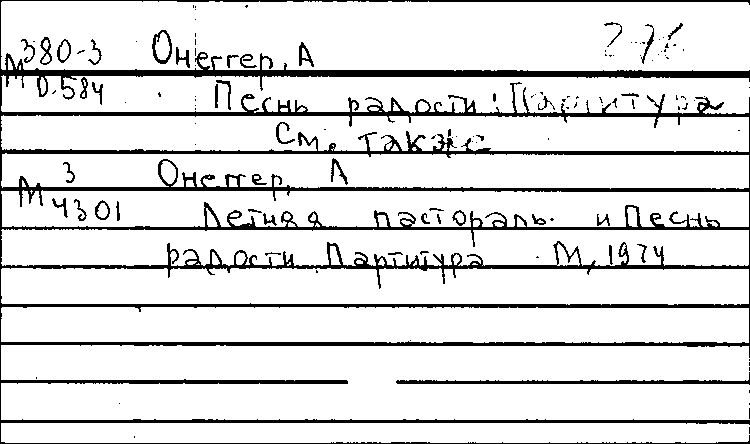 М 380-3 Онеггер, А 276
О-584 Песнь радости: Партитура
См. также
М 3 Онеггер, А
4301 Летняя пастораль. и Песнь
радости Партитура М, 1974